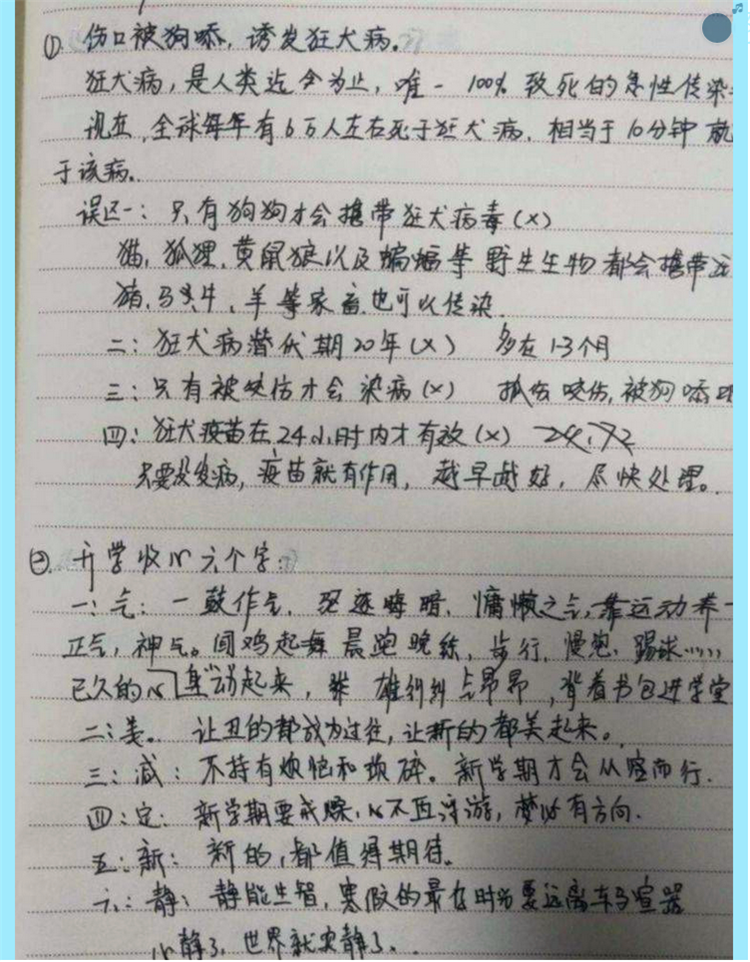 ①. 伤口被狗舔，诱发狂犬病。
狂犬病，是人类迄今为止，唯一 100% 致死的急性传染
现在，全球每年有6万人左右死于狂犬病，相当于10分钟就
于该病。
误区一：只有狗狗才会携带狂犬病毒(×)
猫，狐狸，黄鼠狼以及蝙蝠等野生生物都会携带
猪、马、牛、羊等家畜也可以传染.
二：狂犬病潜伏期20年(×) 多在1-3个月
三：只有被咬伤才会染病(×) 抓伤 咬伤，被狗舔
四：狂犬疫苗在24小时内才有效(×) 24、72
只要没发病，疫苗就有作用，越早越好，尽快处理。
②. 开学收心六个字：
一：气：一鼓作气，驱逐晦暗、慵懒之气，靠运动养一
正气，神气。闻鸡起舞 晨跑晚练，步行，慢跑，踢球……
已久的心 动起来，雄纠纠气昂昂，背着书包进学堂
二：美。 让丑的都成为过往，让新的都美起来。
三：减：不持有烦恼和琐碎。新学期才会从容而行.
四：定：新学期要戒躁，心不再浮游，梦必有方向.
五：新： 新的，都值得期待。
六：静：静能生智，寒假的最后时光要远离车马喧嚣
心静了，世界就安静了.